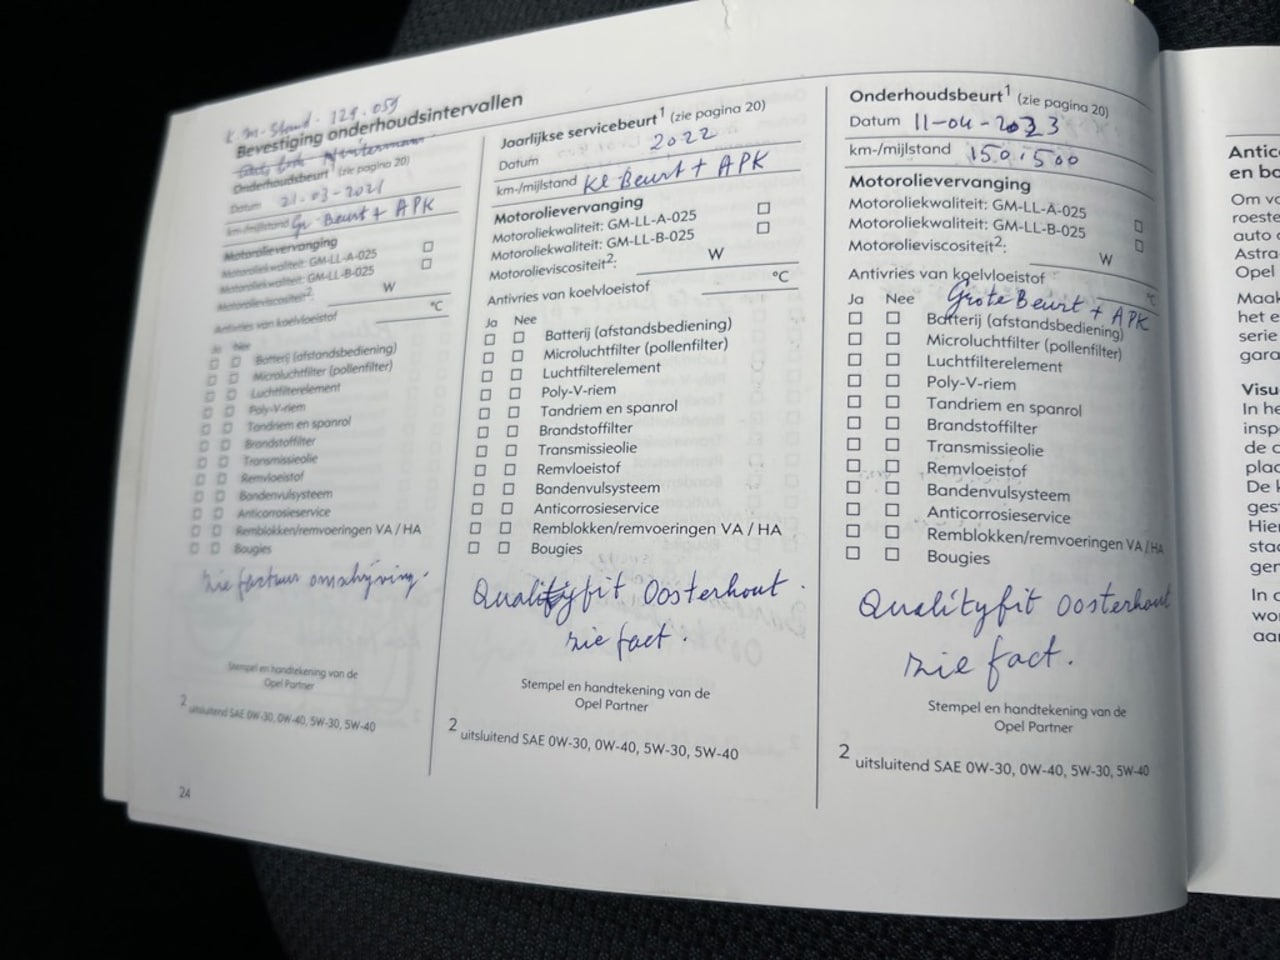 K.M-Stand. 129.059
Bevestiging onderhoudsintervallen
Onderhoudsbeurt¹ (zie pagina 20)
Datum 21-03-2021
km-/mijlstand Gr Beurt + APK
Motorolievervanging
Motoroliekwaliteit: GM-LL-A-025
Motoroliekwaliteit: GM-LL-B-025
Motorolieviscositeit²:
W
Antivries van koelvloeistof
°C
Ja Nee
Batterij (afstandsbediening)
Microluchtfilter (pollenfilter)
Luchtfilterelement
Poly-V-riem
Tandriem en spanrol
Brandstoffilter
Transmissieolie
Remvloeistof
Bandenvulsysteem
Anticorrosieservice
Remblokken/remvoeringen VA / HA
Bougies
zie factuur omschrijving.
Stempel en handtekening van de
Opel Partner
2 uitsluitend SAE 0W-30, 0W-40, 5W-30, 5W-40
24
Jaarlijkse servicebeurt¹ (zie pagina 20)
Datum 2022
km-/mijlstand Kl Beurt + APK
Motorolievervanging
Motoroliekwaliteit: GM-LL-A-025
Motoroliekwaliteit: GM-LL-B-025
Motorolieviscositeit²:
W
Antivries van koelvloeistof
°C
Ja Nee
Batterij (afstandsbediening)
Microluchtfilter (pollenfilter)
Luchtfilterelement
Poly-V-riem
Tandriem en spanrol
Brandstoffilter
Transmissieolie
Remvloeistof
Bandenvulsysteem
Anticorrosieservice
Remblokken/remvoeringen VA / HA
Bougies
Qualityfit Oosterhout.
zie fact.
Stempel en handtekening van de
Opel Partner
2 uitsluitend SAE 0W-30, 0W-40, 5W-30, 5W-40
Onderhoudsbeurt¹ (zie pagina 20)
Datum 11-04-2023
km-/mijlstand 150.500
Motorolievervanging
Motoroliekwaliteit: GM-LL-A-025
Motoroliekwaliteit: GM-LL-B-025
Motorolieviscositeit²:
W
Antivries van koelvloeistof
°C
Grote Beurt + APK
Ja Nee
Batterij (afstandsbediening)
Microluchtfilter (pollenfilter)
Luchtfilterelement
Poly-V-riem
Tandriem en spanrol
Brandstoffilter
Transmissieolie
Remvloeistof
Bandenvulsysteem
Anticorrosieservice
Remblokken/remvoeringen VA / HA
Bougies
Qualityfit Oosterhout
zie fact.
Stempel en handtekening van de
Opel Partner
2 uitsluitend SAE 0W-30, 0W-40, 5W-30, 5W-40
Antic
en bo
Om vo
roeste
auto
Astra
Opel
Maak
het e
serie
gara
Visu
In he
insp
de c
plac
De k
gest
Hier
staa
gen
In
wo
aan